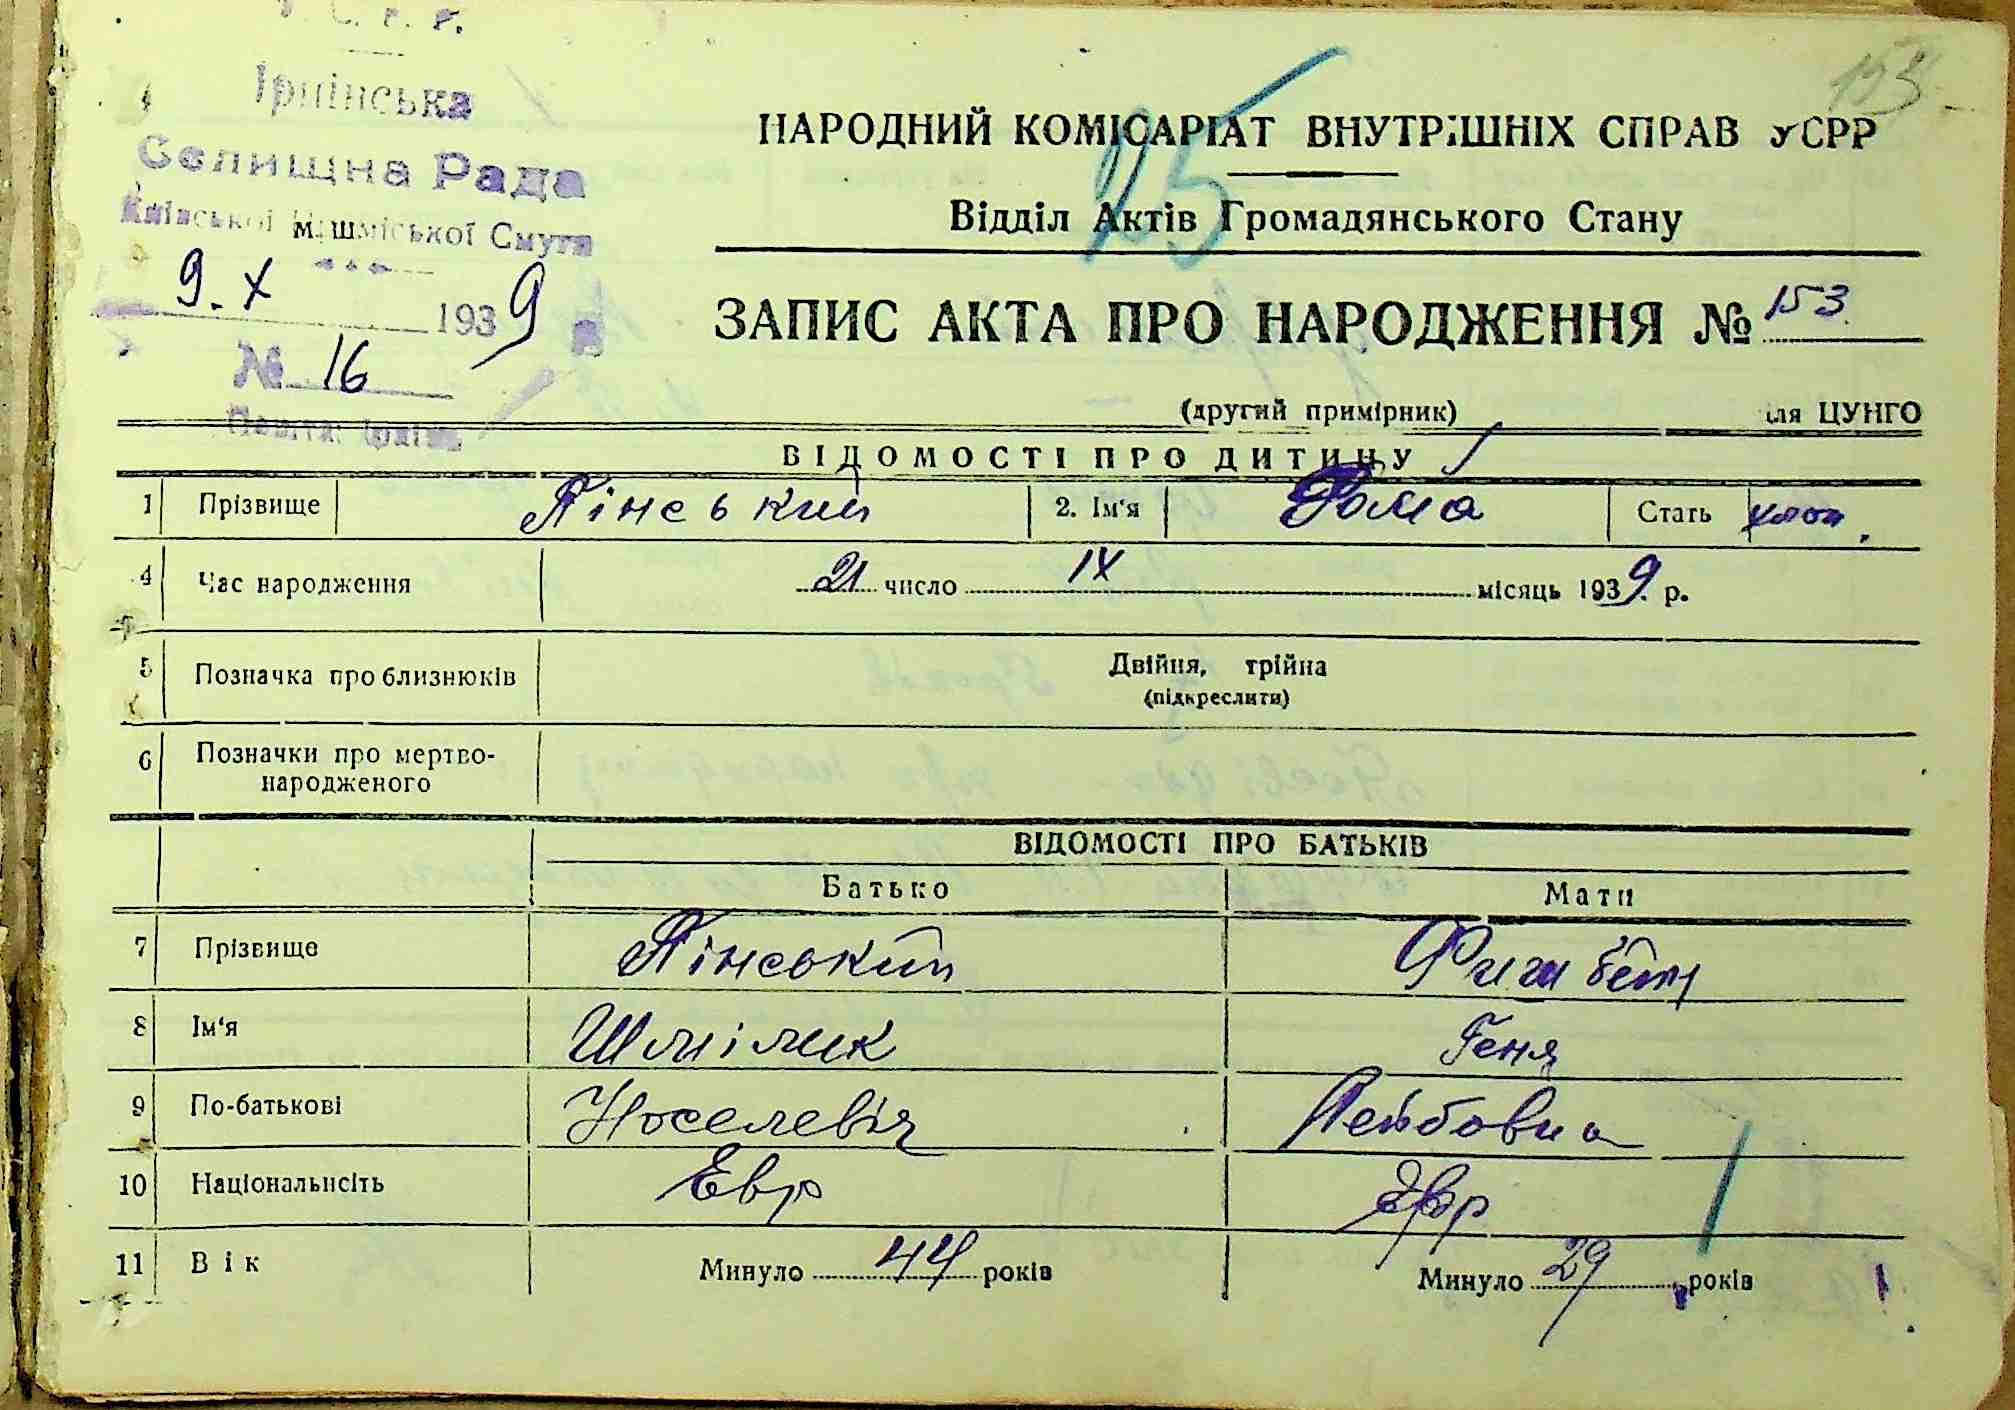 У. С. Р. Р.
Ірпінська
Селищна Рада
Київської міжміської Смуги
9. X 1939 р
№ 16
Пошта: Ірпінь
153
25
НАРОДНИЙ КОМІСАРІАТ ВНУТРІШНІХ СПРАВ УСРР
Відділ Актів Громадянського Стану
ЗАПИС АКТА ПРО НАРОДЖЕННЯ № 153
(другий примірник) для ЦУНГО
ВІДОМОСТІ ПРО ДИТИНУ
1 Прізвище Пінський 2. Ім'я Рома Стать хлоп.
4 Час народження 21 число IX місяць 1939. р.
5 Позначка про близнюків Двійня, трійна
(підкреслити)
6 Позначки про мертво-
народженого
ВІДОМОСТІ ПРО БАТЬКІВ
Батько Мати
7 Прізвище Пінський
8 Ім'я Шмілик Геня
9 По-батькові Йоселевіч Лейбовна
10 Національність Евр Евр
11 Вік Минуло 44 років Минуло 29 років